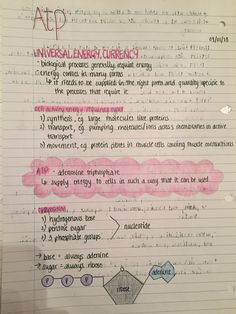 ATP
09/01/18
UNIVERSAL ENERGY CURRENCY
· biological processes generally require energy
· energy comes in many forms
↳ it needs to be supplied in the right form and quantity specific to
the processes that require it
cell activity energy
1) synthesis, eg. large molecules like proteins
2) transport, eg. pumping molecules/ions across membranes in active
transport
3) movement, eg. protein fibres in muscle cells causing muscle contractions.
ATP - adenosine triphosphate
↳ supply energy to cells in such a way that it can be used.
1) nitrogenous base
2) pentose sugar
3) 3 phosphate groups
nucleotide
→ base = always adenine
→ sugar = always ribose
P P P
ribose
adenine